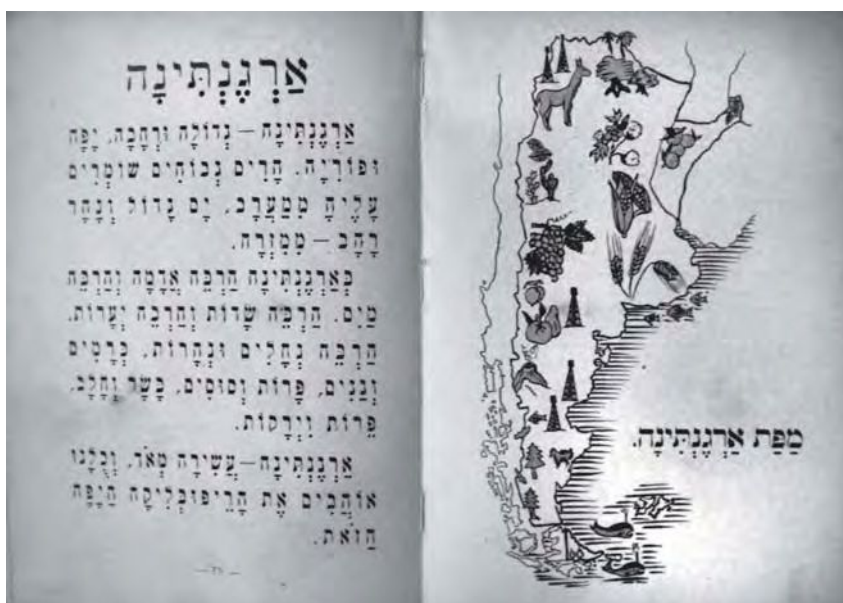 מַפַּת אַרְגֶנְתִּינָה.
אַרְגֶנְתִּינָה
אַרְגֶנְתִּינָה – גְדוֹלָה וּרְחָבָה, יָפָה
וּפוֹרִיָה. הָרִים גְבוֹהִים שוֹמְרִים
עָלֶיהָ מִמַעֲרָב, יָם גָדוֹל וְנָהָר
רָחָב – מִמִזְרָח.
בְּאַרְגֶנְתִּינָה הַרְבֵּה אֲדָמָה וְהַרְבֵּה
מַיִם. הַרְבֵּה שָׂדוֹת וְהַרְבֵּה יְעָרוֹת,
הַרְבֵּה נְחָלִים וּנְהָרוֹת, כְּרָמִים
וְגַנִים, פָּרוֹת וְסוּסִים, בָּשָׂר וְחָלָב,
פֵּרוֹת וִירָקוֹת.
אַרְגֶנְתִּינָה – עֲשִׁירָה מְאֹד, וְכֻלָנוּ
אוֹהֲבִים אֶת הָרֵיפּוּבְּלִיקָה הַיָפָה
הַזֹאת.